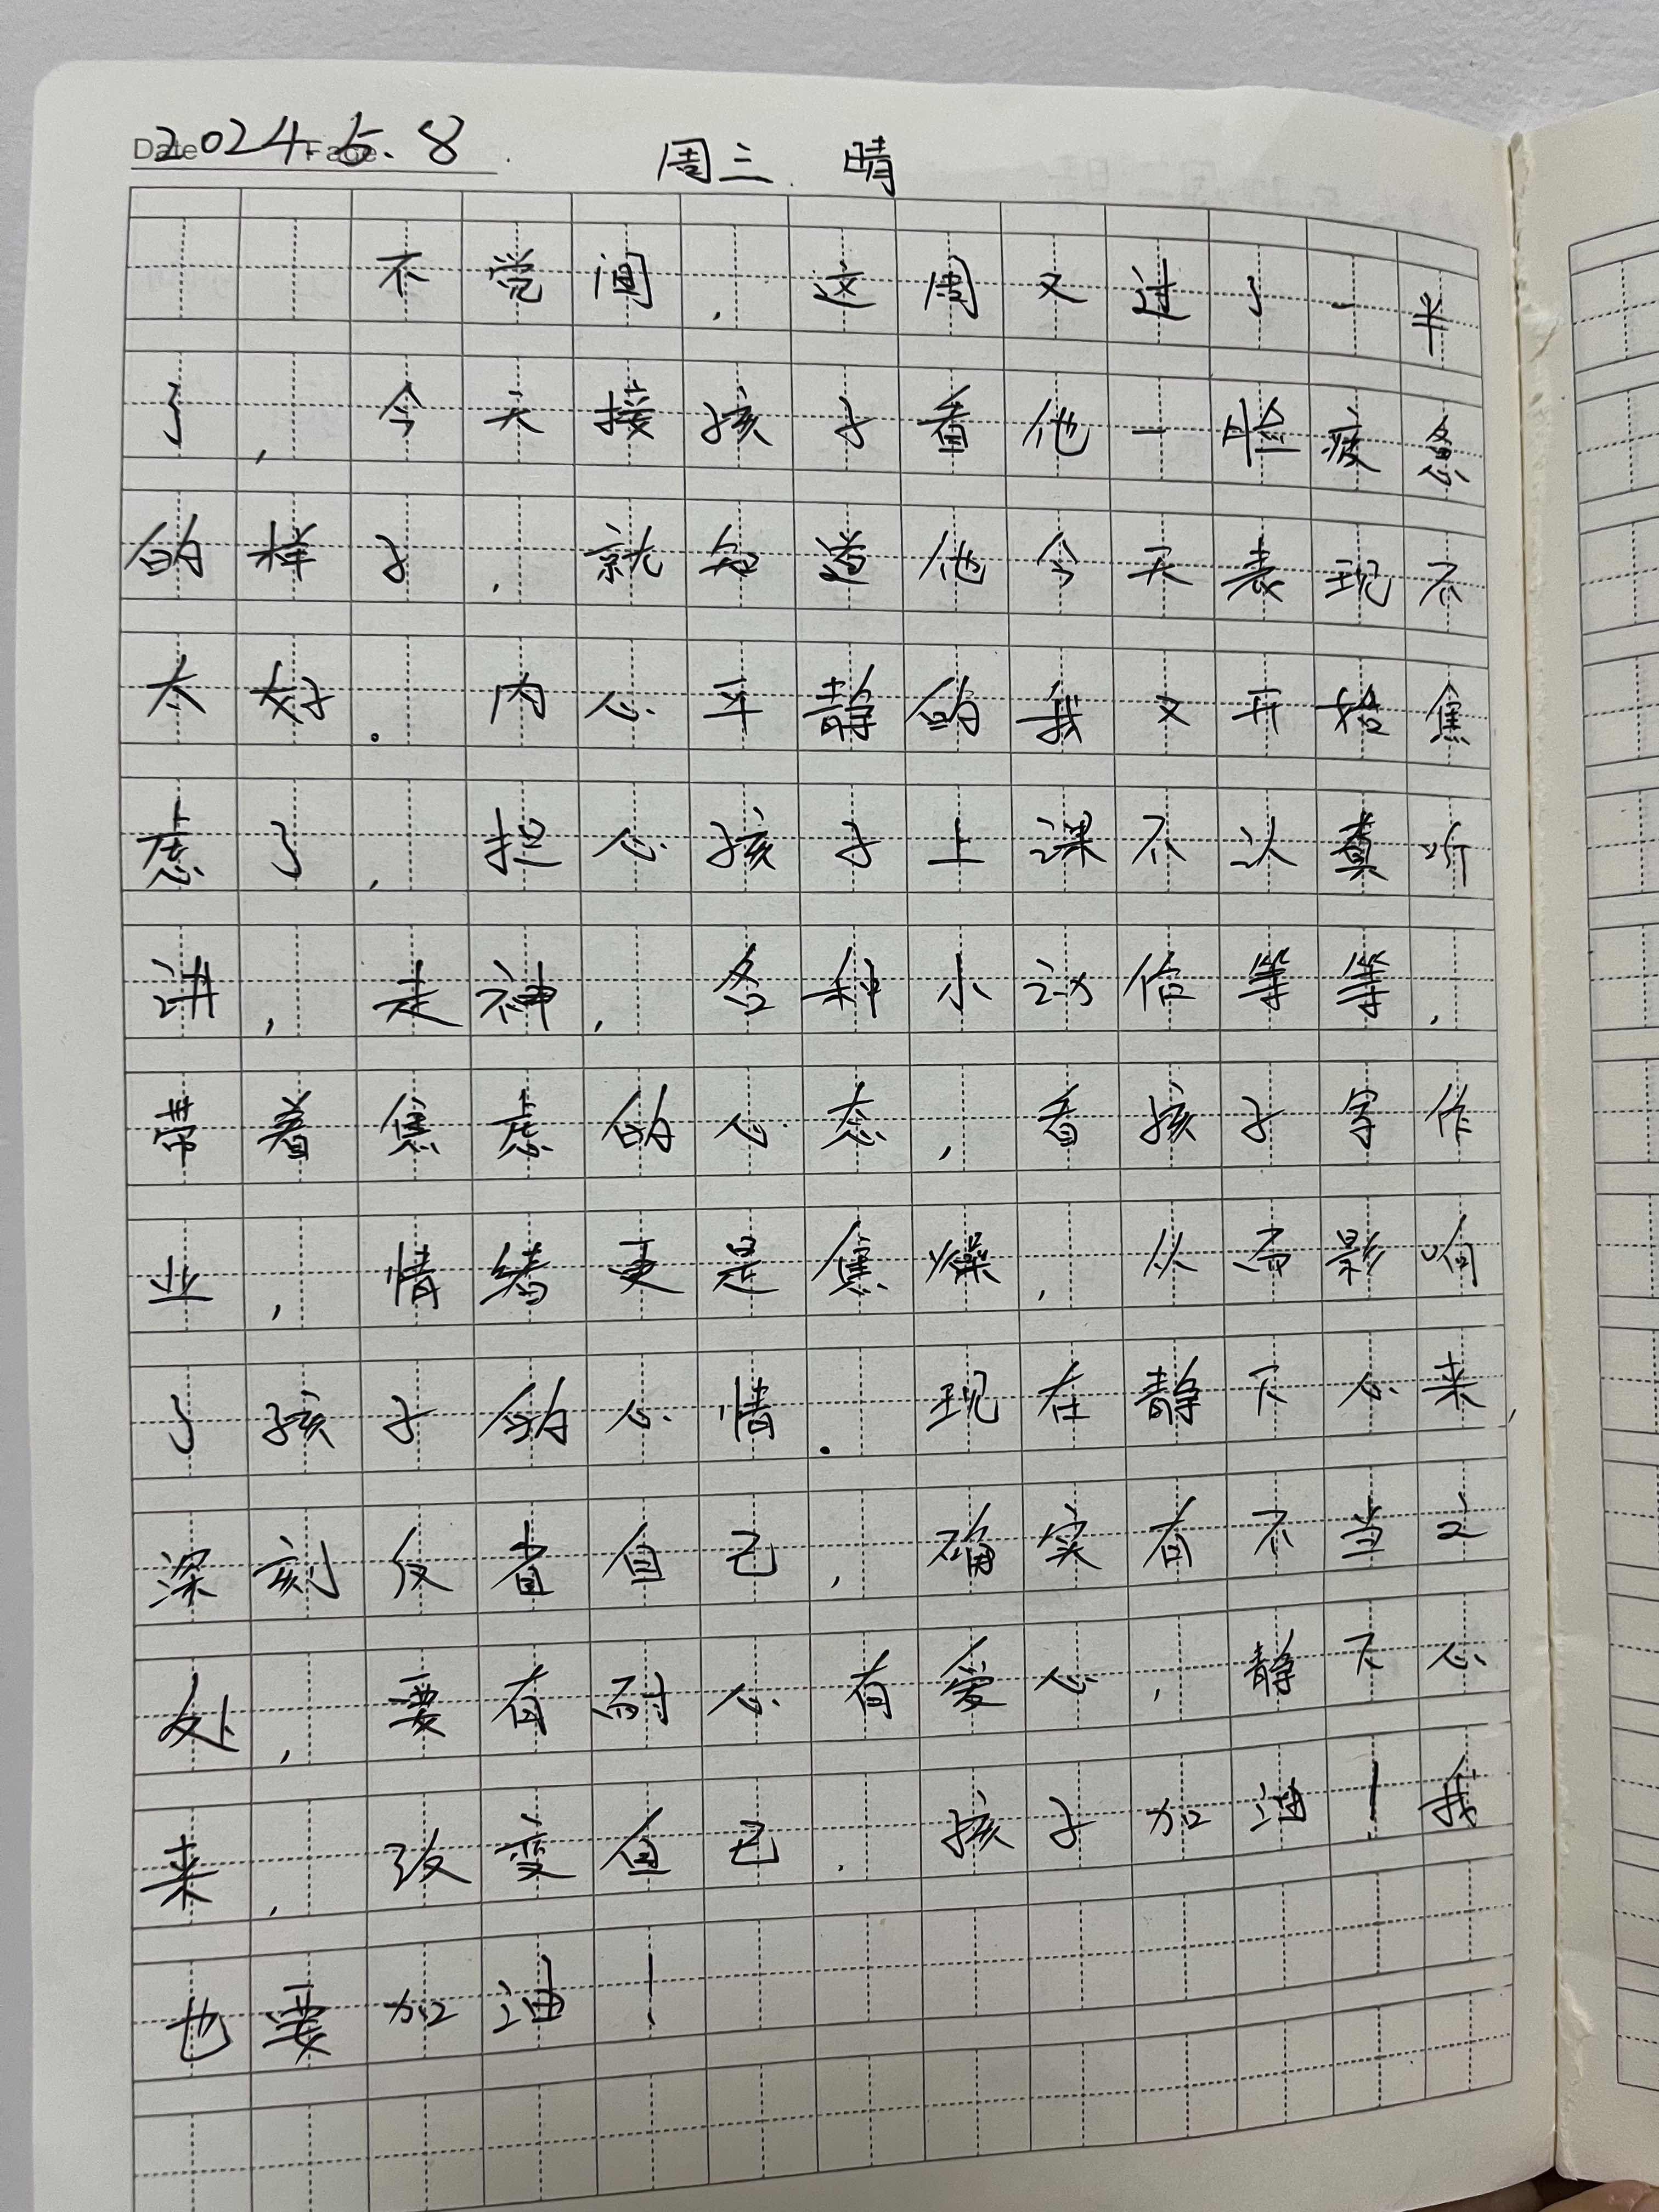 Date Page 2024.5.8. 周三. 晴
不觉间,这周又过了一半
了,今天接孩子看他一脸疲惫
的样子,就知道他今天表现不
太好.内心平静的我又开始焦
虑了,担心孩子上课不认真听
讲,走神,各种小动作等等,
带着焦虑的心态,看孩子写作
业,情绪更是焦燥,从而影响
了孩子的心情.现在静下心来,
深刻反省自己,确实有不当之
处,要有耐心有爱心,静下心
来,改变自己.孩子加油!我
也要加油!